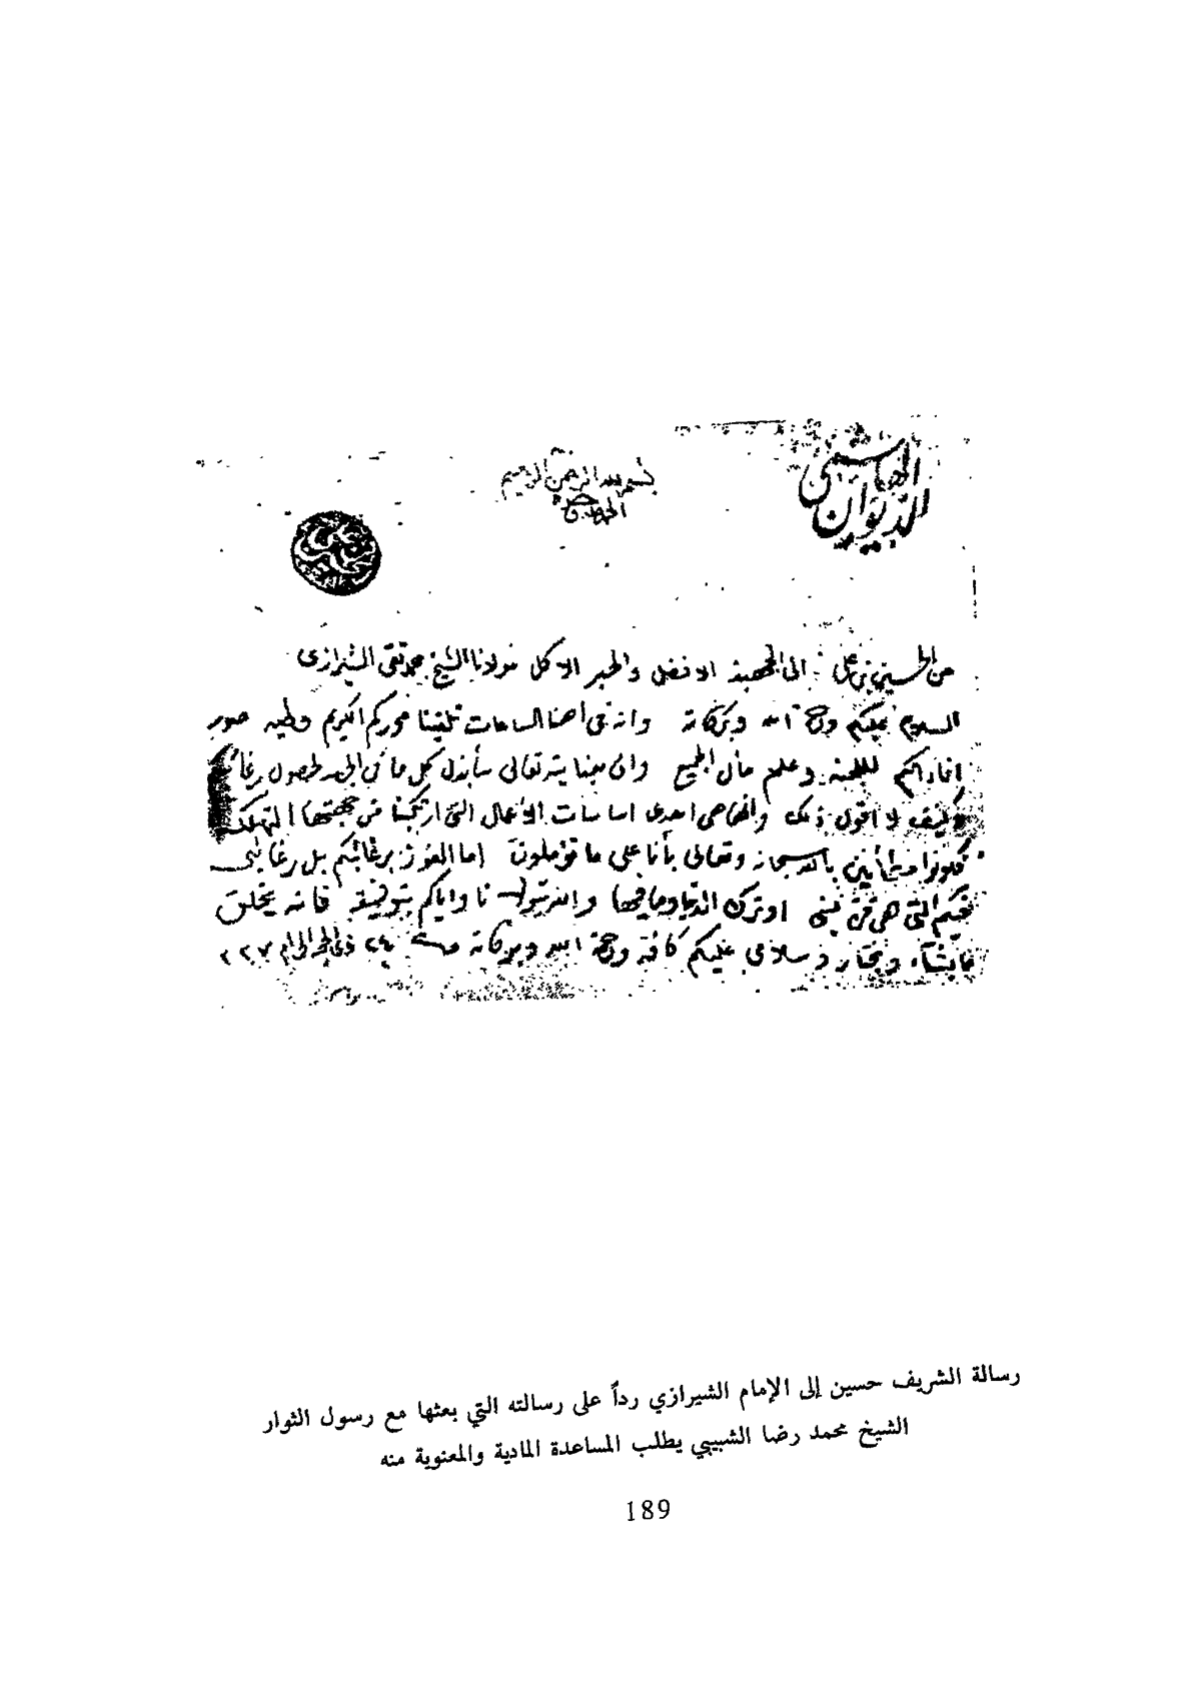 الديوان الهاشمي
بسم الله الرحمن الرحيم
الحمد لله
من الحسين بن علي الى الجهبذ الافضل والحبر الاكمل مولانا الشيخ محمد تقي الشيرازي
السلام عليكم ورحمة الله وبركاته وانه في أهنا الساعات تلقينا محرركم الكريم وطيه صور
افاداتكم للجنة وعلم مآل الجميع واني بعنايته تعالى سأبذل كل ما في الجهد لحصول
وكيف لا اقول ذلك وانها هي احدى اساسات الأعمال التي ارتكبنا من جهتها
فكونوا مطمأنين بالله سبحانه وتعالى بأنا على ما تؤملون اما الفوز برغائبكم بل رغائبي
فيكم التي هي اوترك الدنيا وما فيها والله يتولانا واياكم بتوفيقه فانه يخلق
ما يشاء ويختار وسلامي عليكم كافة ورحمة الله وبركاته ٢٤ ذي الحجة الحرام
رسالة الشريف حسين إلى الإمام الشيرازي رداً على رسالته التي بعثها مع رسول الثوار
الشيخ محمد رضا الشبيبي يطلب المساعدة المادية والمعنوية منه
189